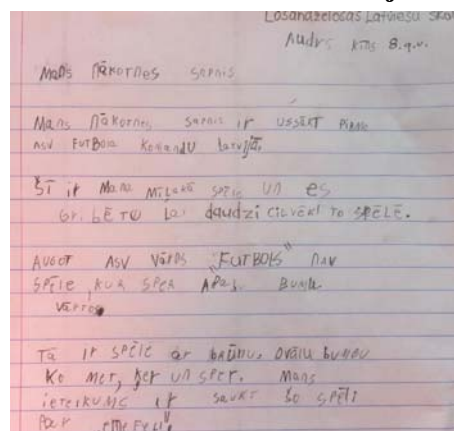 Losandželosas Latviešu sko
Audrs 8.g.v.
Mans nākornes sapnis
Mans nākornes sapnis ir ussākt Pirmo
ASV FUTBOLA KomandU Latvijā.
ŠĪ ir Mana Mīļākā spēle un es
Gribētu Lai daudzi cilvēki to SPĒLĒ.
AUGOT ASV vārds "FUTBOLS" nav
SPĒLE KUR SPER APAĻ. BUMbu
vārtos
Tā ir spēle ar brūnu, ovālu bumbu
Ko Met, Ķer un sper. Mans
ieteikums ir saukt šo spēli
Par